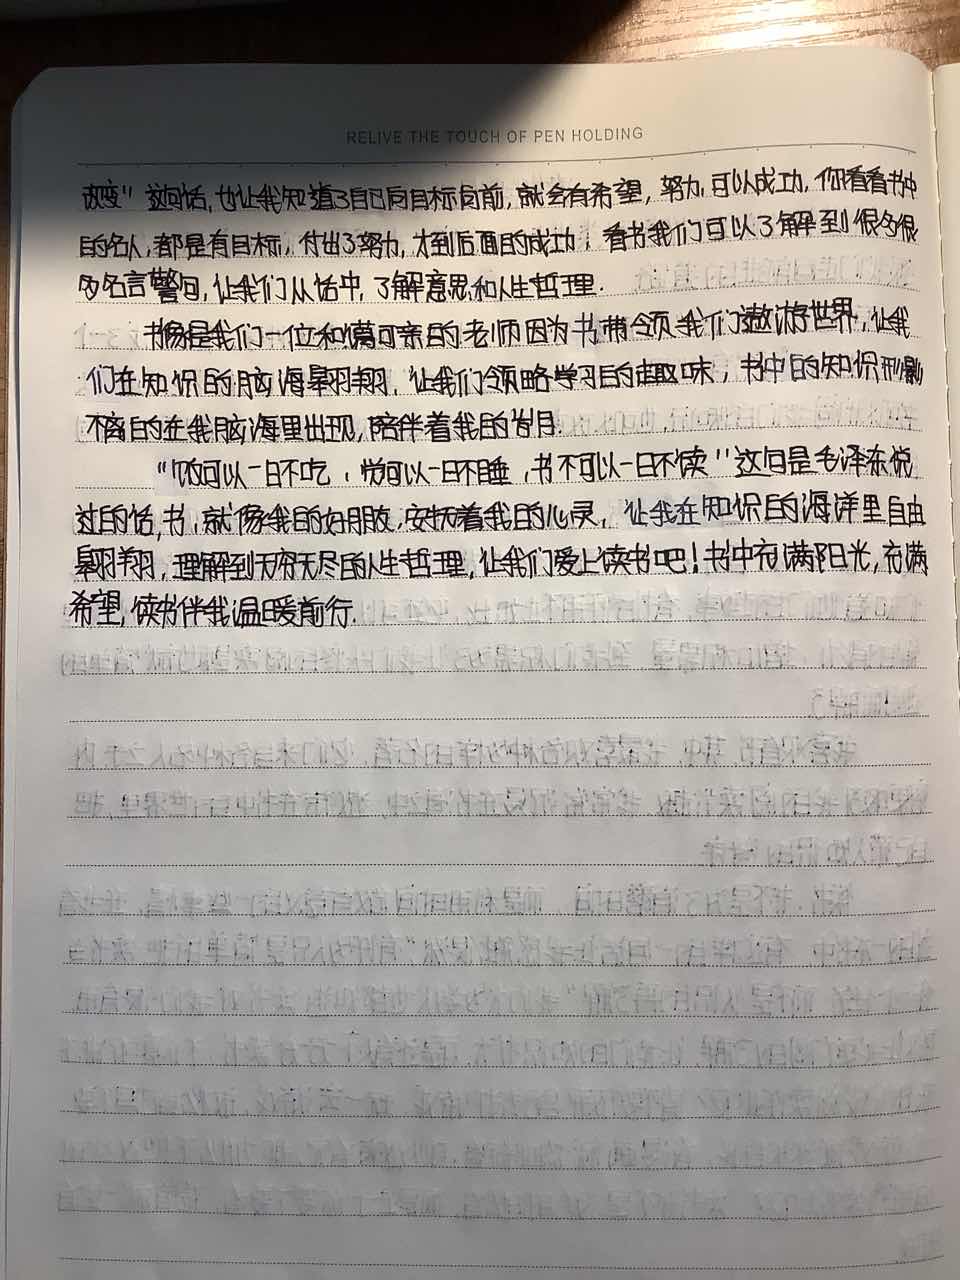 RELIVE THE TOUCH OF PEN HOLDING
改变"这句话,也让我知道了自己向目标向前,就会有希望,努力,可以成功,你看看书中
的名人,都是有目标,付出了努力,才到后面的成功;看书我们可以了解到很多很
多名言警句,让我们从话中,了解意思和人生哲理.
书像是我们一位和蔼可亲的老师因为书带领我们遨游世界,让我
们在知识的脑海翱翔,让我们领略学习的趣味,书中的知识形影
不离的在我脑海里出现,陪伴着我的岁月.
"饭可以一日不吃,觉可以一日不睡,书不可以一日不读"这句是毛泽东说
过的话,书,就像我的好朋友,安抚着我的心灵,让我在知识的海洋里自由
翱翔,理解到无穷无尽的人生哲理,让我们爱上读书吧!书中充满阳光,充满
希望,读书伴我温暖前行.